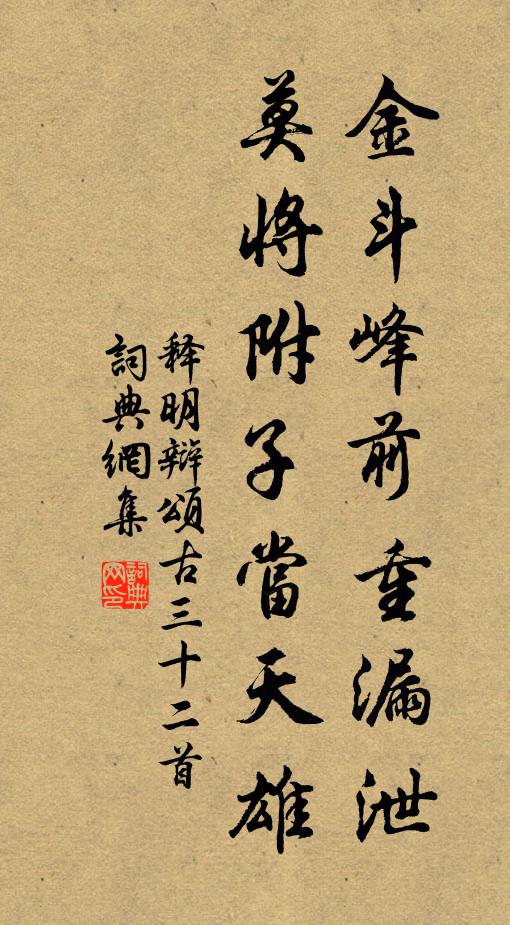 金斗峰前重漏泄
莫將附子當天雄
释明辩頌古三十二首
詞典網集
詞典网印